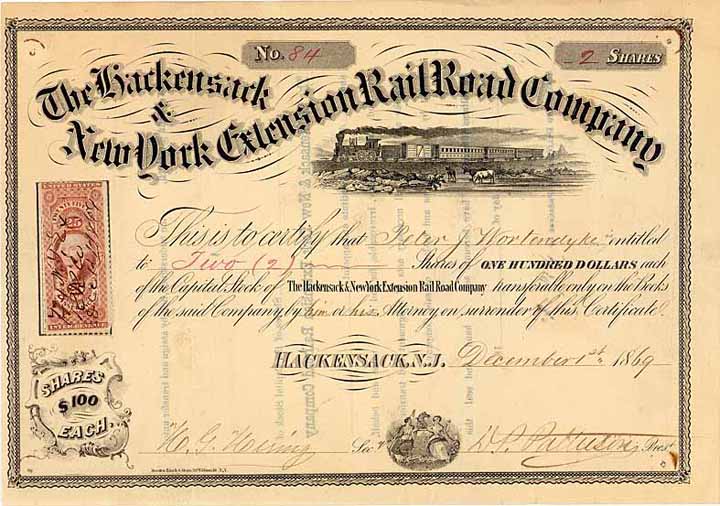 No. 84
2 SHARES
The Hackensack
&
New York Extension Rail Road Company
25
This is to certify that Peter J Wortendyke is entitled
to Two (2) Shares of ONE HUNDRED DOLLARS each
of the Capital Stock of The Hackensack & New York Extension Rail Road Company transferable only on the Books
of the said Company by him or his Attorney on surrender of this Certificate.
HACKENSACK, N.J. December 1st 1869
SHARES
$100
EACH
Sec'y
Prest